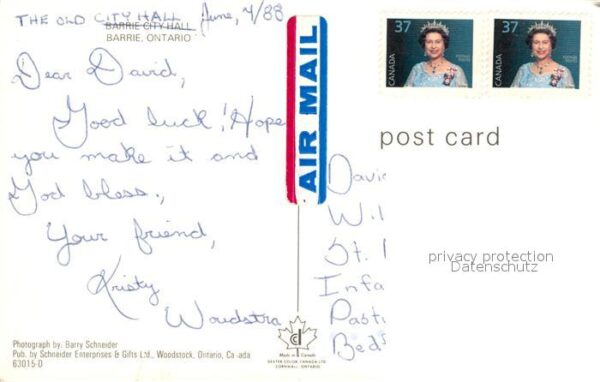 THE OLD CITY HALL June, 4/88
BARRIE CITY HALL
BARRIE, ONTARIO
Dear David,
Good luck! Hope
you make it and
God bless.,
Your friend,
Kristy
Woudstra
Photograph by: Barry Schneider
Pub. by Schneider Enterprises & Gifts Ltd., Woodstock, Ontario, Ca ada
63015-D
AIR MAIL
37
CANADA
37
CANADA
post card
Davi
Wil
St.
Infa
Past
Beds
privacy protection
Datenschutz
Made in Canada
DEXTER COLOR CANADA LTD.
CORNWALL, ONTARIO